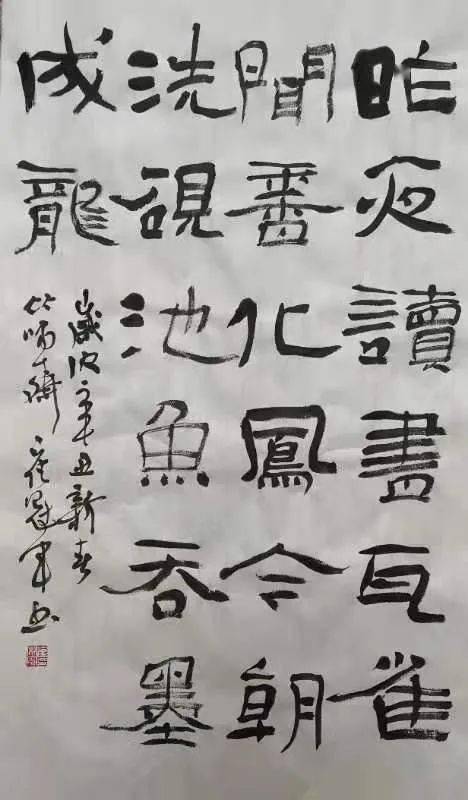 昨夜讀書瓦雀
聞香化鳳今朝
洗硯池魚吞墨
成龍
歲次辛丑新春
齋 冠軍書